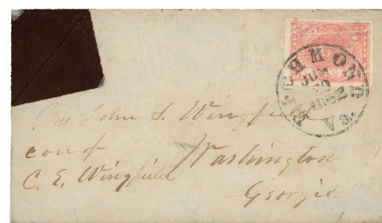 RICHMOND
JUN
VA.
John S. Wingfield
care of
C. E. Wingfield
Washington
Georgia